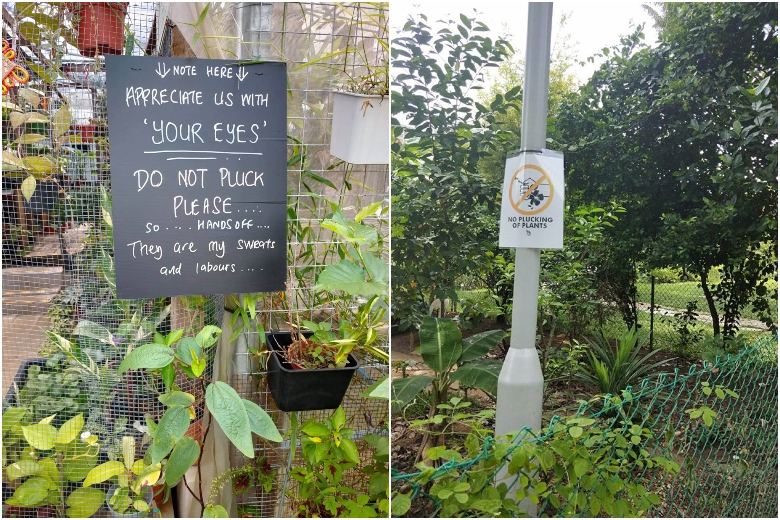 ↓↓ NOTE HERE ↓↓
APPRECIATE US WITH
'YOUR EYES'
DO NOT PLUCK
PLEASE ....
SO .... HANDS OFF ....
They are my sweats
and labours ....
NO PLUCKING
OF PLANTS